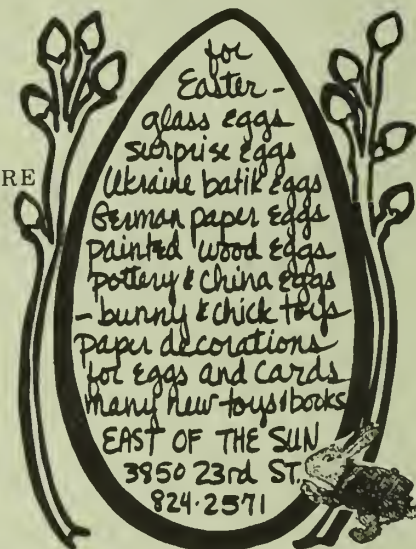 RE
for
Easter -
glass eggs
surprise eggs
Ukraine batik eggs
German paper eggs
painted wood eggs
pottery & china eggs
- bunny & chick toys
paper decorations
for eggs and cards
many new toys & books
EAST OF THE SUN
3850 23rd ST.
824-2571